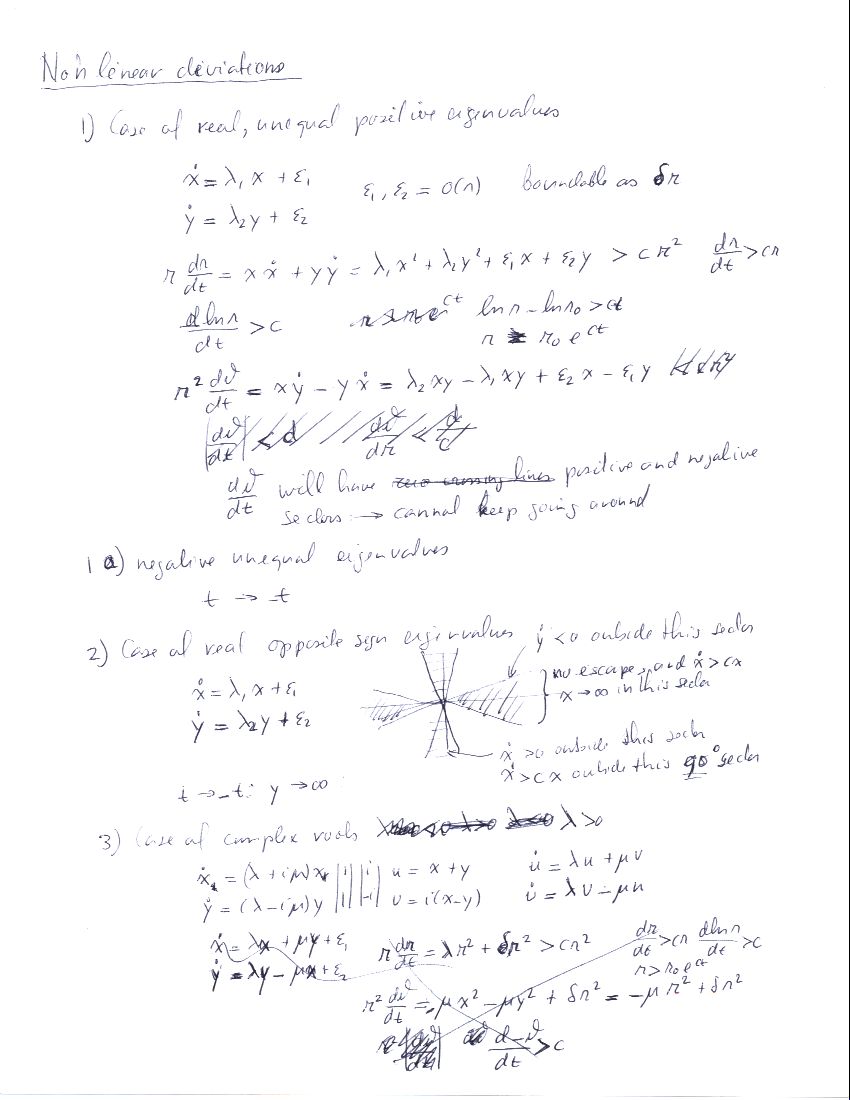 Non linear deviations
1) Case of real, unequal positive eigenvalues
ẋ = λ₁x + ε₁
ε₁, ε₂ = o(r) boundable as δr
ẏ = λ₂y + ε₂
r dr/dt = xẋ + yẏ = λ₁x² + λ₂y² + ε₁x + ε₂y > cr² dr/dt > cr
d ln r/dt > c ln r − ln r₀ > ct
r ≥ r₀e^ct
r² dϑ/dt = xẏ − yẋ = λ₂xy − λ₁xy + ε₂x − ε₁y
|dϑ/dt| < d dϑ/dr < d/c
dϑ/dt will have zero crossing lines positive and negative
sectors → cannot keep going around
1a) negative unequal eigenvalues
t → −t
2) Case of real opposite sign eigenvalues
ẏ < 0 outside this sector
ẋ = λ₁x + ε₁
ẏ = λ₂y + ε₂
no escape, and ẋ > cx
x → ∞ in this sector
ẋ > 0 outside this sector
ẋ > cx outside this 90° sector
t → −t: y → ∞
3) Case of complex roots λ > 0
ẋ = (λ + iμ)x u = x + y u̇ = λu + μv
ẏ = (λ − iμ)y v = i(x − y) v̇ = λv − μu
ẋ = λx + μy + ε₁
ẏ = λy − μx + ε₂
r dr/dt = λr² + δr² > cr² dr/dt > cr d ln r/dt > c
r > r₀e^ct
r² dϑ/dt = −μx² − μy² + δr² = −μr² + δr²
d−ϑ/dt > c